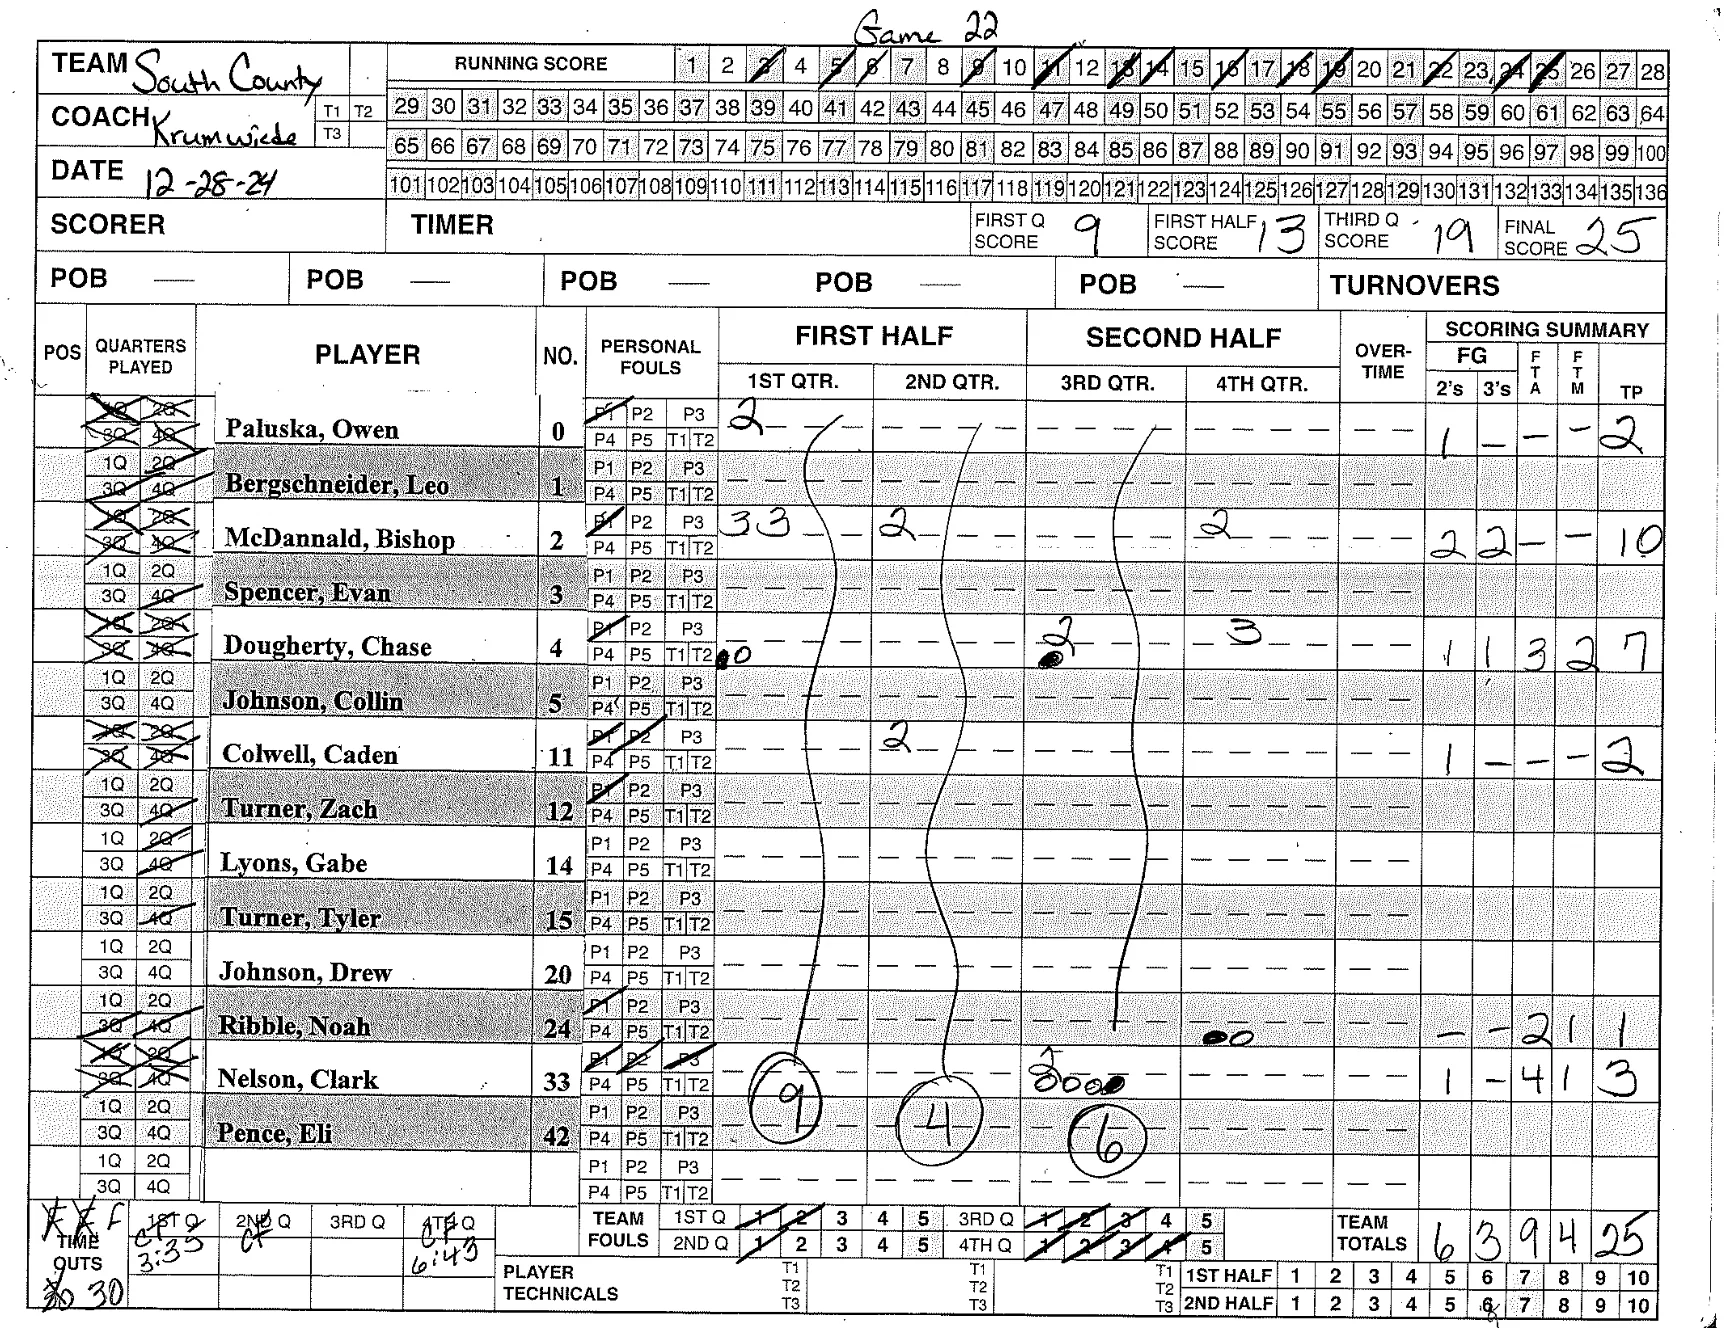 Game 22
TEAM South County
RUNNING SCORE 1 2 3 4 5 6 7 8 9 10 11 12 13 14 15 16 17 18 19 20 21 22 23 24 25 26 27 28
COACH Krumwiede T1 T2 T3
29 30 31 32 33 34 35 36 37 38 39 40 41 42 43 44 45 46 47 48 49 50 51 52 53 54 55 56 57 58 59 60 61 62 63 64
65 66 67 68 69 70 71 72 73 74 75 76 77 78 79 80 81 82 83 84 85 86 87 88 89 90 91 92 93 94 95 96 97 98 99 100
DATE 12-28-24
101 102 103 104 105 106 107 108 109 110 111 112 113 114 115 116 117 118 119 120 121 122 123 124 125 126 127 128 129 130 131 132 133 134 135 136
SCORER TIMER FIRST Q SCORE 9 FIRST HALF SCORE 13 THIRD Q SCORE 19 FINAL SCORE 25
POB — POB — POB — POB — POB — TURNOVERS
POS QUARTERS PLAYED PLAYER NO. PERSONAL FOULS FIRST HALF SECOND HALF OVER-TIME SCORING SUMMARY
1ST QTR. 2ND QTR. 3RD QTR. 4TH QTR. FG 2's 3's FTA FTM TP
1Q 2Q P1 P2 P3 2
3Q 4Q Paluska, Owen 0 P4 P5 T1 T2 1 - - - 2
1Q 2Q P1 P2 P3
3Q 4Q Bergschneider, Leo 1 P4 P5 T1 T2
1Q 2Q P1 P2 P3 3 3 2 2
3Q 4Q McDannald, Bishop 2 P4 P5 T1 T2 2 2 - - 10
1Q 2Q P1 P2 P3
3Q 4Q Spencer, Evan 3 P4 P5 T1 T2
1Q 2Q P1 P2 P3 2 3
3Q 4Q Dougherty, Chase 4 P4 P5 T1 T2 1 1 3 2 7
1Q 2Q P1 P2 P3
3Q 4Q Johnson, Collin 5 P4 P5 T1 T2
1Q 2Q P1 P2 P3 2
3Q 4Q Colwell, Caden 11 P4 P5 T1 T2 1 - - - 2
1Q 2Q P1 P2 P3
3Q 4Q Turner, Zach 12 P4 P5 T1 T2
1Q 2Q P1 P2 P3
3Q 4Q Lyons, Gabe 14 P4 P5 T1 T2
1Q 2Q P1 P2 P3
3Q 4Q Turner, Tyler 15 P4 P5 T1 T2
1Q 2Q P1 P2 P3
3Q 4Q Johnson, Drew 20 P4 P5 T1 T2
1Q 2Q P1 P2 P3
3Q 4Q Ribble, Noah 24 P4 P5 T1 T2 - - 2 1 1
1Q 2Q P1 P2 P3 2
3Q 4Q Nelson, Clark 33 P4 P5 T1 T2 1 - 4 1 3
1Q 2Q P1 P2 P3 9 4 6
3Q 4Q Pence, Eli 42 P4 P5 T1 T2
1Q 2Q P1 P2 P3
3Q 4Q P4 P5 T1 T2
F F F TIME OUTS 30 30
1ST Q 2ND Q 3RD Q 4TH Q
CF 3:35 CF CF 6:43
TEAM FOULS 1ST Q 1 2 3 4 5 3RD Q 1 2 3 4 5
2ND Q 1 2 3 4 5 4TH Q 1 2 3 4 5
TEAM TOTALS 6 3 9 4 25
PLAYER TECHNICALS T1 T2 T3 T1 T2 T3 T1 T2 T3
1ST HALF 1 2 3 4 5 6 7 8 9 10
2ND HALF 1 2 3 4 5 6 7 8 9 10